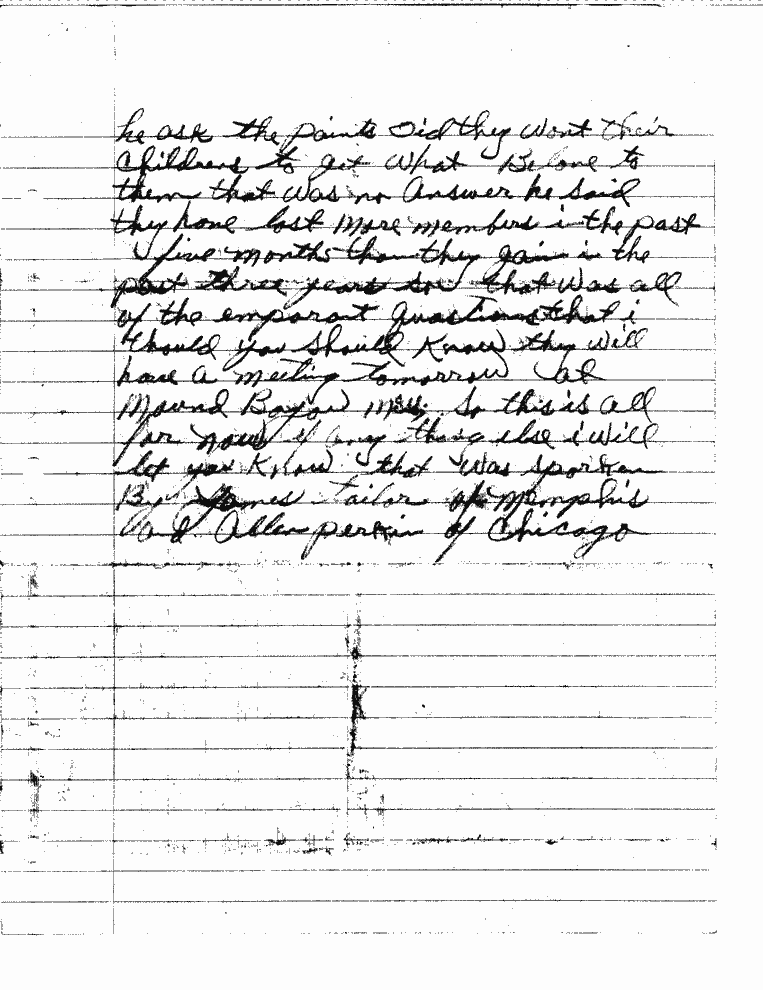 he ask the paints did they wont their
childrens to get what Belone to
them that was no answer he said
they have lost more members in the past
five months than they gain in the
past three years so that was all
of the emporant quastions that i
thould you should know they will
have a meeting tomorrow at
Mound Bayou Miss. So this is all
for now if any thing else i will
let you know that was sporken
By James Tailor of Memphis
and Allen perkin of Chicago